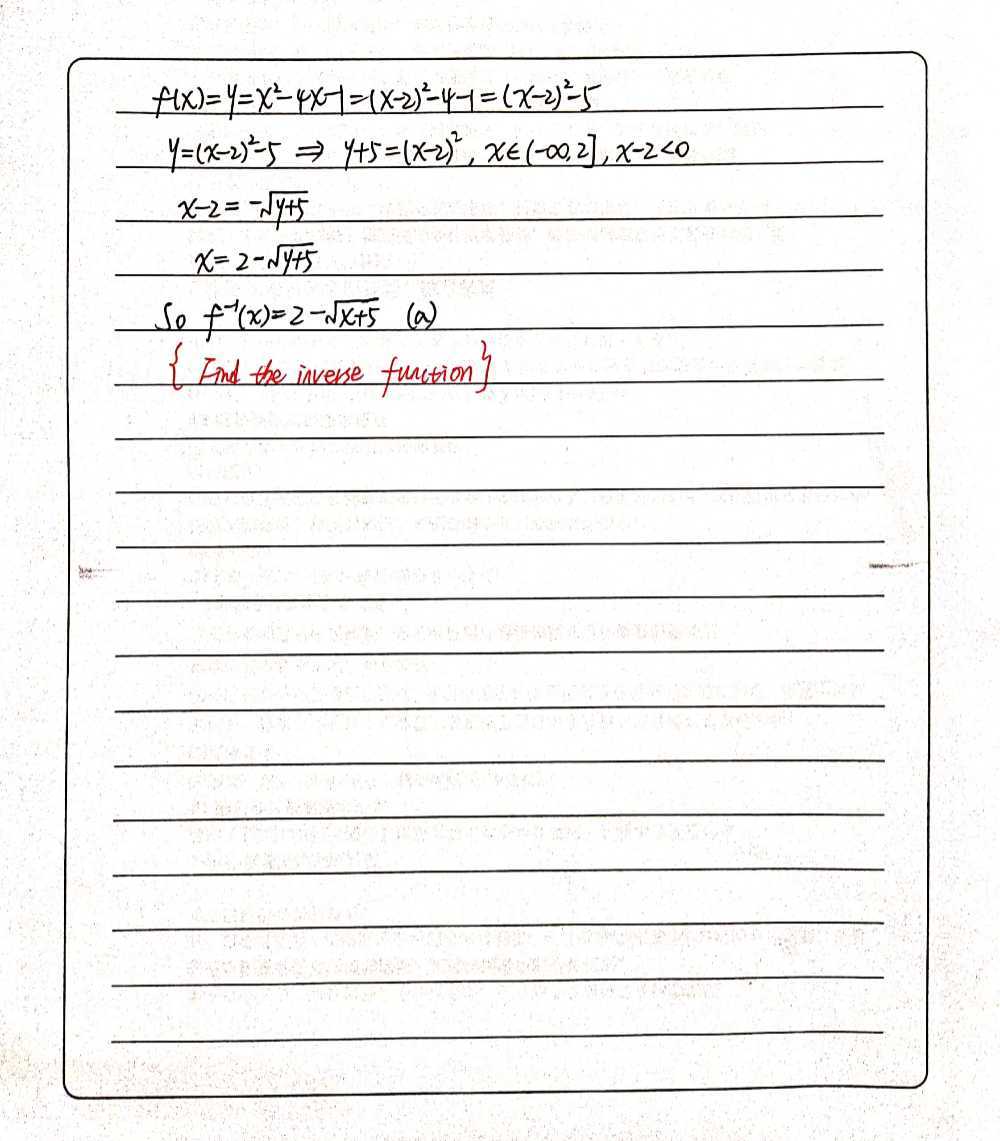 f(x)=y=x²-4x-1=(x-2)²-4-1=(x-2)²-5
y=(x-2)²-5 ⇒ y+5=(x-2)², x∈(-∞,2], x-2<0
x-2=-√(y+5)
x=2-√(y+5)
So f⁻¹(x)=2-√(x+5) (a)
{ Find the inverse function }